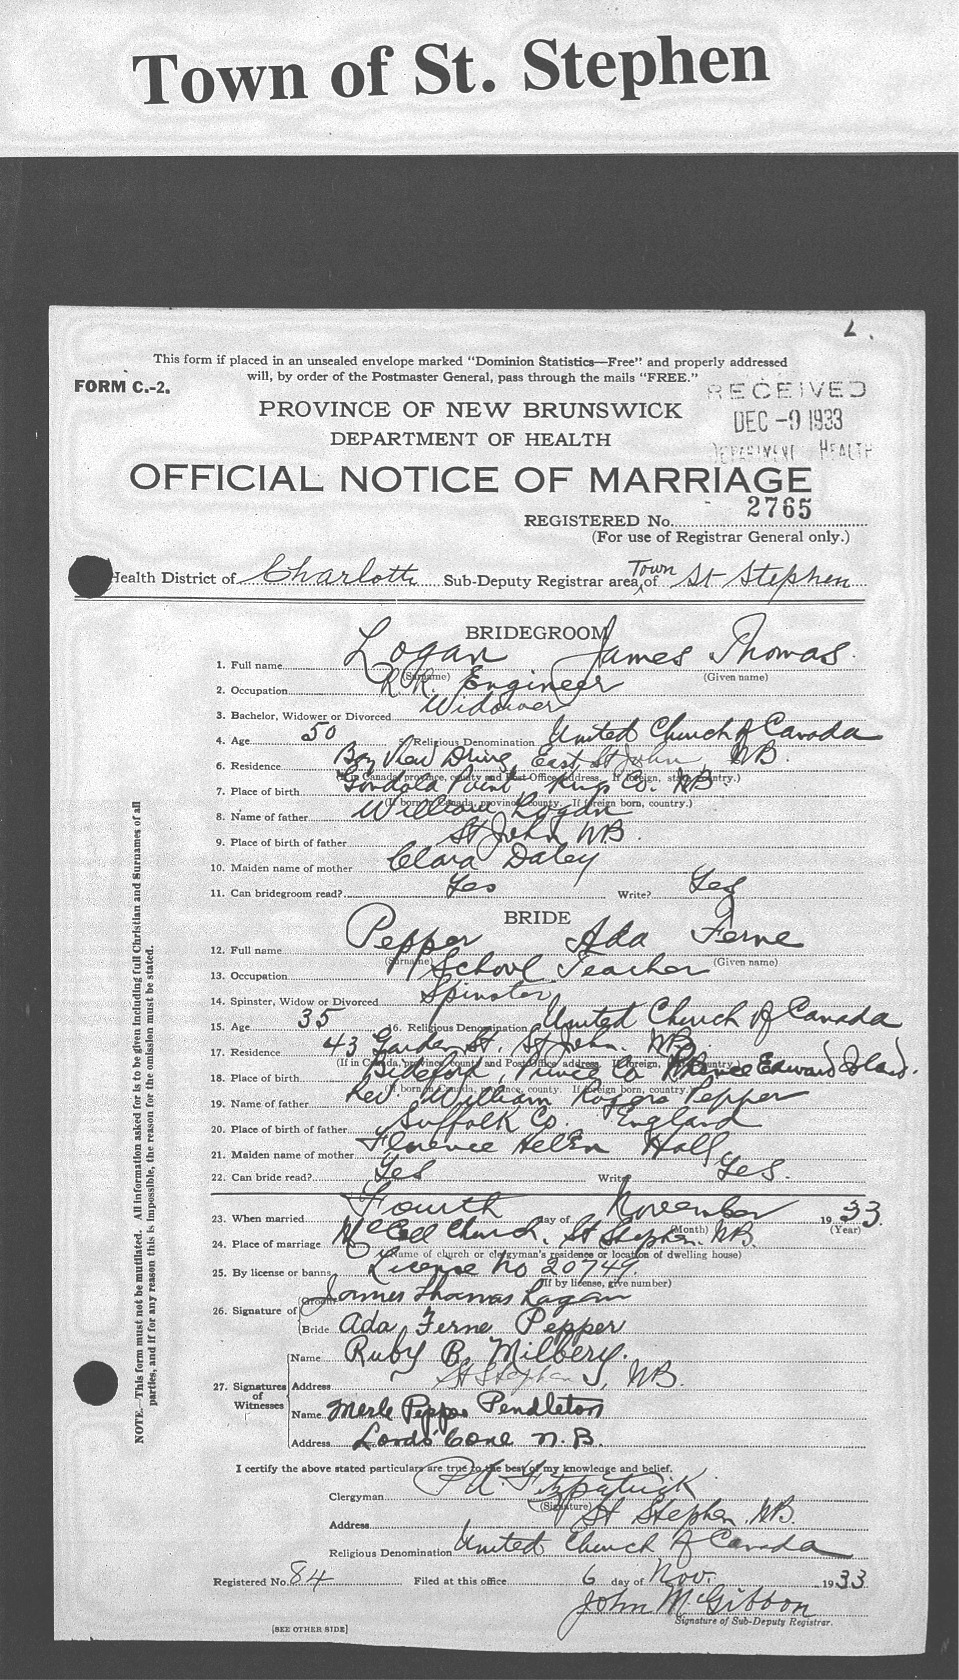 Town of St. Stephen
L.
This form if placed in an unsealed envelope marked "Dominion Statistics—Free" and properly addressed
will, by order of the Postmaster General, pass through the mails "FREE."
FORM C.-2.
RECEIVED
DEC -9 1933
DEPARTMENT HEALTH
PROVINCE OF NEW BRUNSWICK
DEPARTMENT OF HEALTH
OFFICIAL NOTICE OF MARRIAGE
REGISTERED No. 2765
(For use of Registrar General only.)
Health District of Charlotte Sub-Deputy Registrar area, of Town St Stephen
BRIDEGROOM
1. Full name Logan James Thomas.
(Surname) (Given name)
2. Occupation R.R. Engineer
3. Bachelor, Widower or Divorced Widower
4. Age 50 5. Religious Denomination United Church of Canada
6. Residence Bay View Drive, East St John, N.B.
(If in Canada, province, county and Post-Office address. If foreign, state country.)
7. Place of birth Gondola Point Kings Co. N.B.
(If born in Canada, province, county. If foreign born, country.)
8. Name of father William Logan
9. Place of birth of father St John N.B.
10. Maiden name of mother Clara Daley
11. Can bridegroom read? Yes Write? Yes
BRIDE
12. Full name Pepper Ada Ferne
(Surname) (Given name)
13. Occupation School Teacher
14. Spinster, Widow or Divorced Spinster
15. Age 35 16. Religious Denomination United Church of Canada
17. Residence 43 Garden St. St John. N.B.
(If in Canada, province, county and Post-Office address. If foreign, state country.)
18. Place of birth Bideford, Prince Co Prince Edward Island.
(If born in Canada, province, county. If foreign born, country.)
19. Name of father Rev. William Rogers Pepper
20. Place of birth of father Suffolk Co. England
21. Maiden name of mother Florence Helen Hall
22. Can bride read? Yes Write? Yes.
23. When married Fourth day of November 1933.
(Month) (Year)
24. Place of marriage McColl Church, St Stephen. N.B.
(Name of church or clergyman's residence or location of dwelling house)
25. By license or banns License No 20749.
(If by license, give number)
26. Signature of Groom James Thomas Logan
Bride Ada Ferne Pepper
27. Signatures of Witnesses
Name Ruby B. Milbery.
Address St Stephen, N.B.
Name Merle Pepper Pendleton
Address Lords Cove N.B.
I certify the above stated particulars are true to the best of my knowledge and belief.
Clergyman Fitzpatrick
(Signature)
Address St Stephen, N.B.
Religious Denomination United Church of Canada
Registered No. 84 Filed at this office 6 day of Nov. 1933
John McGibbon
Signature of Sub-Deputy Registrar.
[SEE OTHER SIDE]
NOTE.—This form must not be mutilated. All information asked for is to be given including full Christian and Surnames of all
parties, and if for any reason this is impossible, the reason for the omission must be stated.